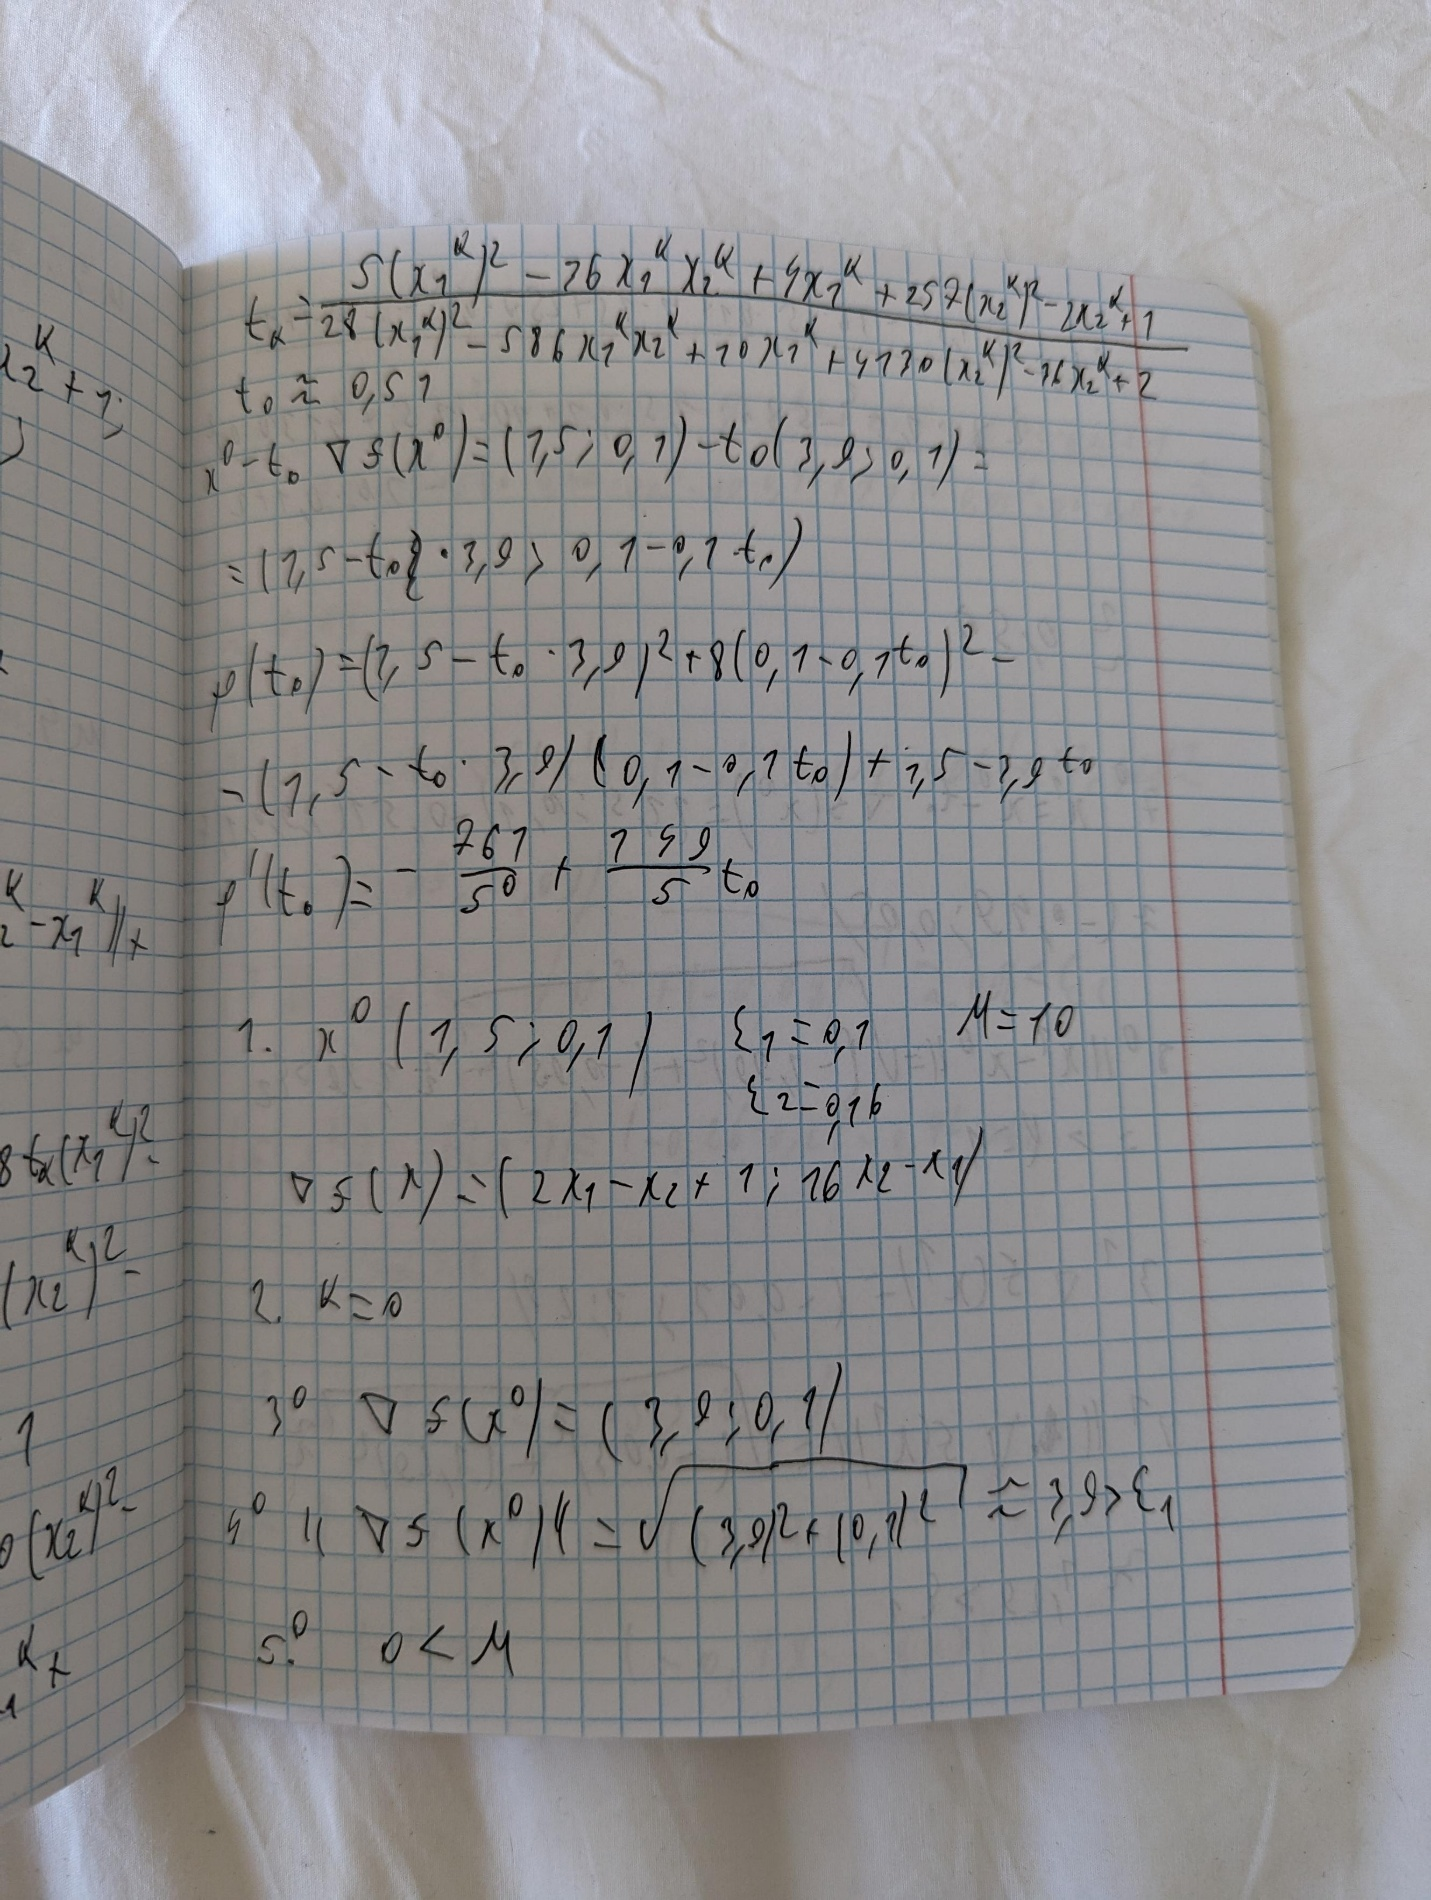 t_k = (5(x_1^k)^2 - 26x_1^k x_2^k + 4x_1^k + 257(x_2^k)^2 - 2x_2^k + 1) / (28(x_1^k)^2 - 586x_1^k x_2^k + 20x_1^k + 4130(x_2^k)^2 - 36x_2^k + 2)
t_0 ≈ 0,51
x^0 - t_0 ∇f(x^0) = (1,5; 0,1) - t_0(3,9; 0,1) =
= (1,5 - t_0 · 3,9; 0,1 - 0,1 t_0)
φ(t_0) = (1,5 - t_0 · 3,9)^2 + 8(0,1 - 0,1t_0)^2 -
- (1,5 - t_0 · 3,9)(0,1 - 0,1t_0) + 1,5 - 3,9t_0
φ'(t_0) = - 761/50 + 149/5 t_0
1. x^0 (1,5; 0,1) ε_1 = 0,1 M = 10
ε_2 = 0,16
∇f(x) = (2x_1 - x_2 + 1; 16x_2 - x_1)
2. k = 0
3^0 ∇f(x^0) = (3,9; 0,1)
4^0 || ∇f(x^0) || = √((3,9)^2 + (0,1)^2) ≈ 3,9 < ε_1
5.^0 0 < M
x_2^k + 1;
_2 - x_1^k)) +
8t_k(x_1^k)^2 -
(x_2^k)^2 -
1
0(x_2^k)^2 -
_1^k +